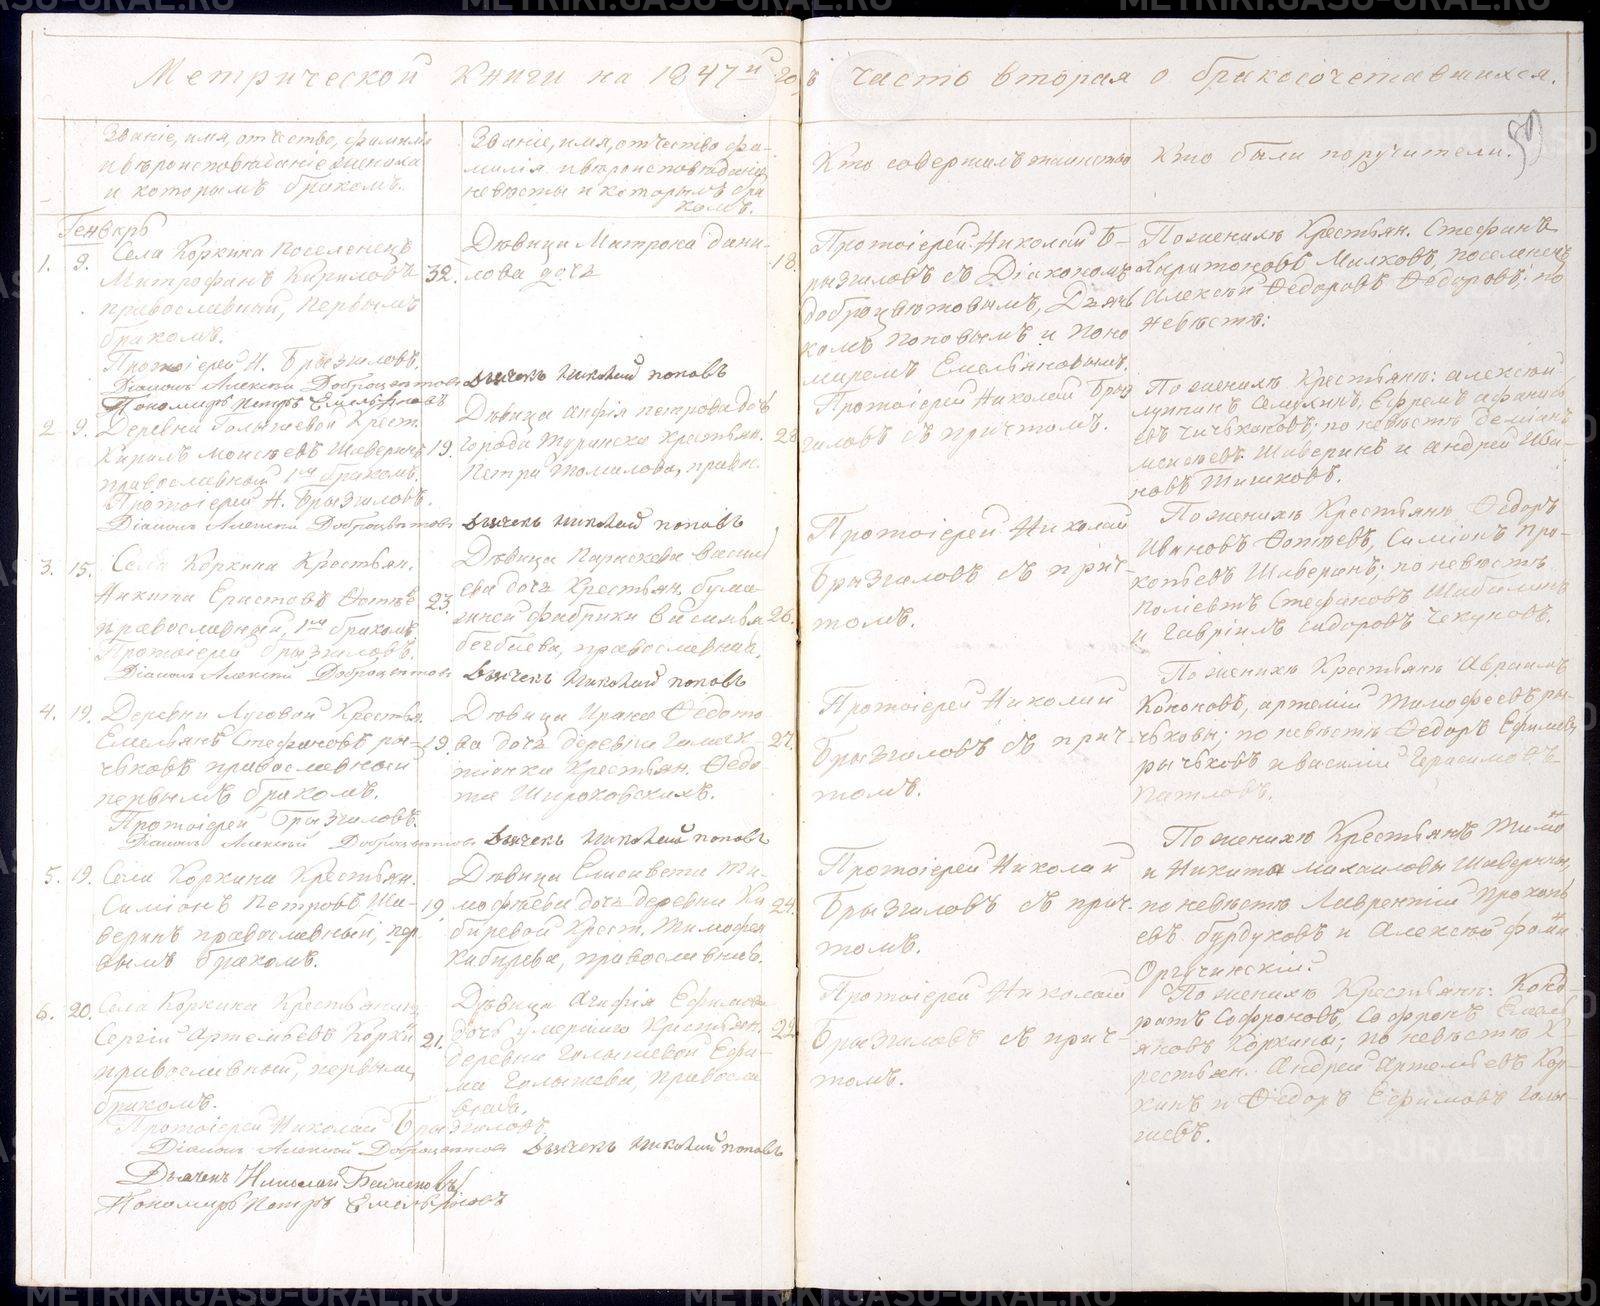 Метрической книги на 1847й годъ часть вторая о бракосочетавшихся.
59
Званіе, имя, отчество, фамилія
и вѣроисповѣданіе жениха
и которымъ бракомъ.
Званіе, имя, отчество фа-
милія и вѣроисповѣданіе
невѣсты и которымъ бра
комъ.
Кто совершалъ таинство
Кто были поручители.
Генварь
1. 9. Села Коркина поселенецъ
Митрофанъ Кириловъ 32.
православный, первымъ
бракомъ.
Протоіерей Н. Брызгаловъ.
Діаконъ Алексей Доброцвѣтовъ
Пономарь Петръ Емельяновъ
Дѣвица Матрона Дани-
лова дочь 18.
Дьячекъ Николай Поповъ
Протоіерей Николай Б-
рызгаловъ съ Діакономъ
Доброцвѣтовымъ, Дьяч
комъ Поповымъ и Поно
маремъ Емельяновымъ.
По женихѣ Крестьян. Стефанъ
Харитоновъ Малковъ, поселенецъ
Алексѣй Ѳедоровъ Ѳедоровъ; по
невѣстѣ:
2 9. Деревни Голышевой Крест.
Кирилъ Моисѣевъ Шаверинъ 19.
православный 1мъ бракомъ.
Протоіерей Н. Брызгаловъ.
Діаконъ Алексей Доброцвѣтовъ
Дѣвица Анфія Петрова дочь
города Туринска крестьян. 28
Петра Томилова, правос.
Дьячекъ Николай Поповъ
Протоіерей Николай Брыз
галовъ съ причтомъ.
По женихѣ Крестьянъ: Алексѣй
Семухинъ, Ефремъ Афанась
евъ по невѣстѣ Деміанъ
Моисѣевъ Шаверинъ и Андрей Ива-
новъ Тишковъ.
3. 15. Села Коркина Крестьян.
Никита Еристовъ Ѳотѣевъ 23.
православный, 1мъ бракомъ
Протоіерей Брызгаловъ.
Діаконъ Алексей Доброцвѣтовъ
Дѣвица Параскева Василь
ева дочь Крестьян. бума-
жной фабрики Василья 26.
православная.
Дьячекъ Николай Поповъ
Протоіерей Николай
Брызгаловъ съ прич-
томъ.
По женихѣ Крестьянъ Ѳедоръ
Ивановъ Ѳотѣевъ, Симіонъ Про-
копьевъ Шаверинъ; по невѣстѣ
Поліевтъ Стефановъ Шабалинъ
и Гавріилъ Сидоровъ Чекуновъ.
4. 19. Деревни Луговой Крестья.
Емельянъ Стефановъ ры- 19.
чьковъ православный
первымъ бракомъ.
Протоіерей Брызгаловъ.
Діаконъ Алексей Доброцвѣтовъ
Дѣвица Ираида Ѳедото-
ва дочь деревни 27.
Крестьян. Ѳедо-
та Широковскихъ.
Дьячекъ Николай Поповъ
Протоіерей Николай
Брызгаловъ съ прич-
томъ.
По женихѣ Крестьянъ Авраамъ
Кононовъ, Артемій Тимофеевъ ры-
чьковы; по невѣстѣ Ѳедоръ Ефимовъ
рычьковъ и Василій Герасимовъ
Патловъ.
5. 19. Села Коркина Крестьян.
Симіонъ Петровъ Ша- 19.
веринъ православный, пер
вымъ бракомъ.
Дѣвица Елисавета Ти-
мофѣева дочь деревни Ка 24.
биревой Крест. Тимофея
Кабирева, православная.
Протоіерей Николай
Брызгаловъ съ прич-
томъ.
По женихѣ Крестьянъ Тимо
и Никита Михаиловы Шаверины,
по невѣстѣ Лаврентій Прокопь
евъ бурдуковъ и Алексѣй Фоми
Оргучинскій.
6. 20. Села Коркина Крестьянинъ
Сергій Артемьевъ Коркин 21.
православный, первымъ
бракомъ.
Протоіерей Николай Брызгаловъ.
Діаконъ Алексей Доброцвѣтовъ Дьячекъ Николай Поповъ
Дьячекъ Николай
Пономарь Петръ Емельяновъ
Дѣвица Агафія Ефимова
дочь умершаго Крестьян. 22
деревни Голышевой Ефи-
ма Голышева, правосла
вная.
Протоіерей Николай
Брызгаловъ съ прич-
томъ.
По женихѣ Крестьянъ: Конд-
ратъ Софроновъ, Софронъ Емель
яновъ Коркины; по невѣстѣ К-
рестьян. Андрей Артемьевъ Кор-
кинъ и Ѳедоръ Ефимовъ Голы-
шевъ.
METRIKI.GASO-URAL.RU